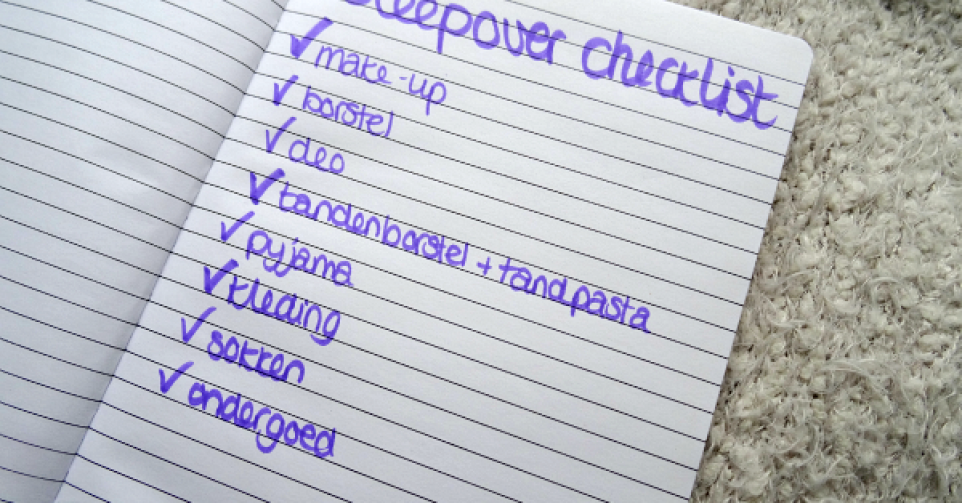 sleepover checklist
✓ make-up
✓ borstel
✓ deo
✓ tandenborstel + tandpasta
✓ pyjama
✓ kleding
✓ sokken
✓ ondergoed